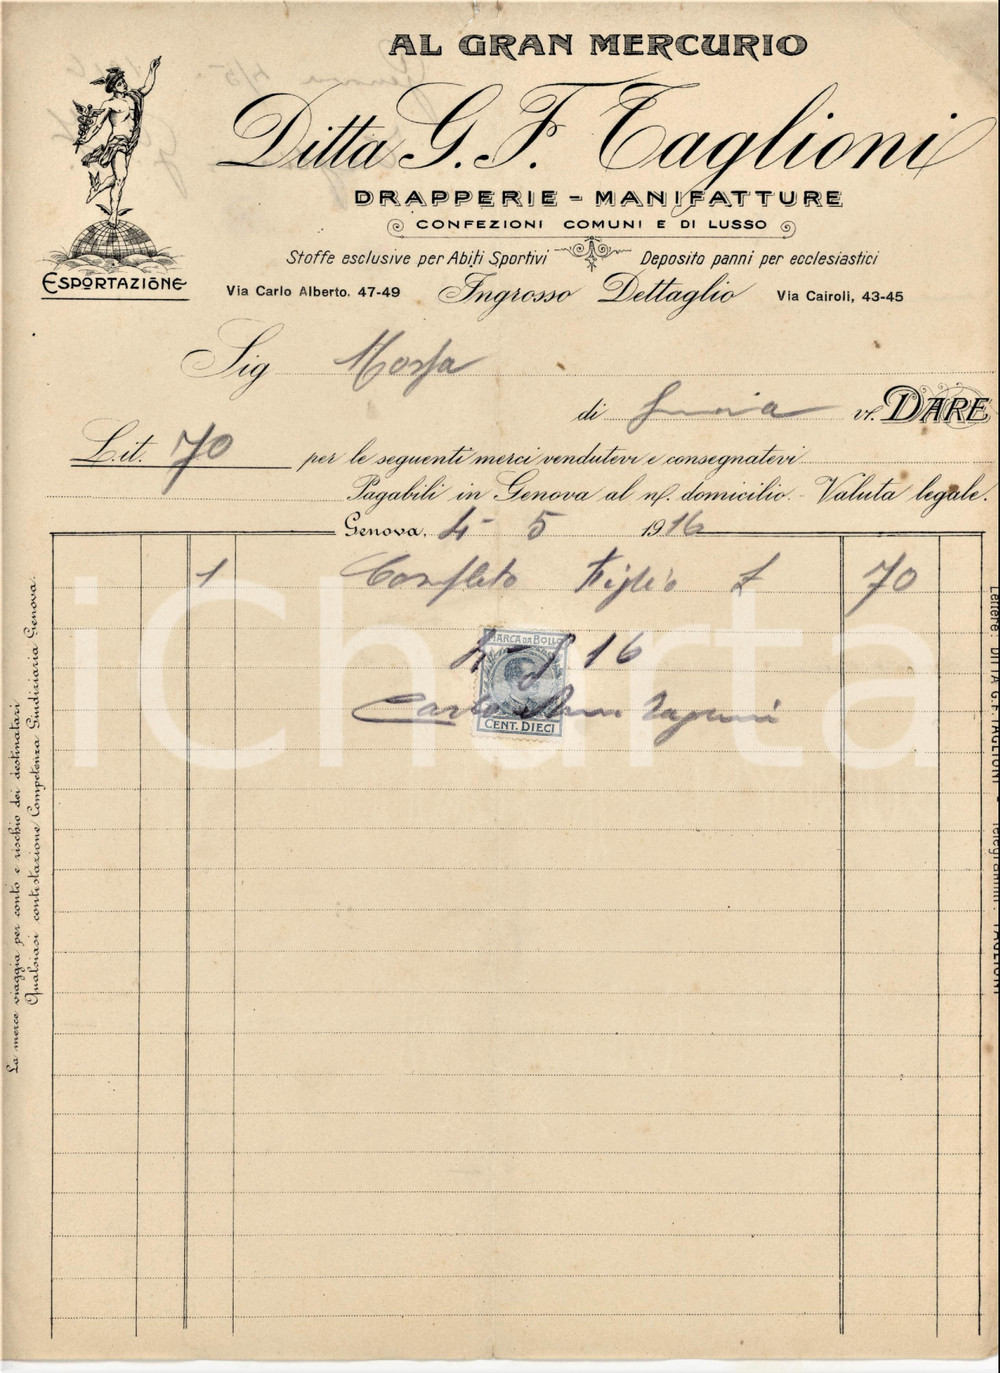 AL GRAN MERCURIO
Ditta G. F. Taglioni
DRAPPERIE - MANIFATTURE
CONFEZIONI COMUNI E DI LUSSO
Stoffe esclusive per Abiti Sportivi Deposito panni per ecclesiastici
ESPORTAZIONE
Via Carlo Alberto. 47-49 Ingrosso Dettaglio Via Cairoli, 43-45
Sig
di vs. DARE
Lit. 70 per le seguenti merci vendutevi e consegnatevi
Pagabili in Genova al ns. domicilio. - Valuta legale.
Genova, 4 - 5 1916
1 Completo Figlio £ 70
MARCA DA BOLLO
4-5 16
Carlo
CENT. DIECI
iCharta
La merce viaggia per conto e rischio dei destinatari
Qualsiasi contestazione Competenza Giudiziaria Genova.
Lettere: DITTA G.F. TAGLIONI - Telegrammi: TAGLIONI